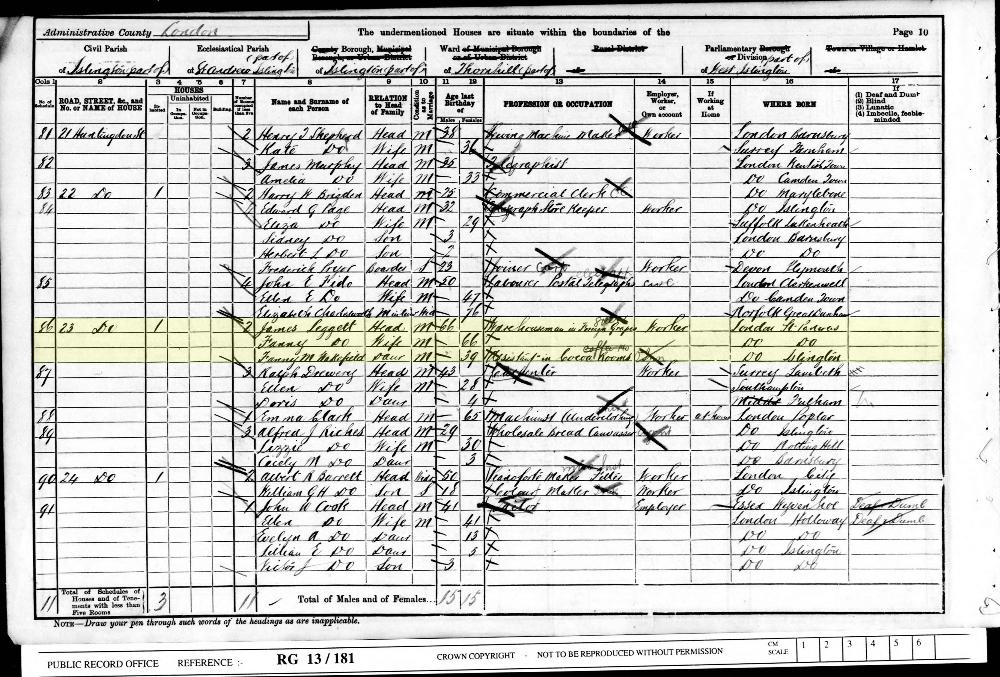 Administrative County London
The undermentioned Houses are situate within the boundaries of the
Page 10
Civil Parish
of Islington part of
Ecclesiastical Parish
part of
of St Andrew Islington
County Borough, Municipal
Borough, or Urban District
of Islington (part of)
Ward of Municipal Borough
or of Urban District
of Thornhill (part of)
Rural District
Parliamentary Borough
or Division part of
of West Islington
Town or Village or Hamlet
Cols 1 2 3 4 5 6 7 8 9 10 11 12 13 14 15 16 17
No. of Schedule
ROAD, STREET, &c., and No. or NAME of HOUSE
HOUSES
Inhabited
Uninhabited
In Occupation
Not in Occupation
Building
Name and Surname of each Person
RELATION to Head of Family
Condition as to Marriage
Age last Birthday of
Males Females
PROFESSION OR OCCUPATION
Employer, Worker, or Own account
If Working at Home
WHERE BORN
If
(1) Deaf and Dumb
(2) Blind
(3) Lunatic
(4) Imbecile, feeble-minded
81 21 Huntingdon St 2 Henry J Shepherd Head M 38 Maker Worker London Barnsbury
Kate Do Wife M 36 Surrey Farnham
82 3 James Murphy Head M 35 Telegraphist London Kentish Town
Amelia Do Wife M 33 Do Camden Town
83 22 Do 1 2 Harry W Brigden Head M 75 Commercial Clerk Do Marylebone
84 Edward G Page Head M 32 Telegraph Store Keeper Worker Do Islington
Eliza Do Wife M 29 Suffolk Lakenheath
Sidney Do Son 3 London Barnsbury
Herbert L Do Son 2 Do Do
Frederick Pryer Boarder S 23 Joiner Worker Devon Plymouth
85 4 John E Fido Head M 50 Labourer Postal Telegraphs London Clerkenwell
Ellen E Do Wife M 47 Do Camden Town
Elizabeth Charlesworth M in law Wid 76 Norfolk Great Dunham
86 23 Do 1 2 James Leggett Head M 66 Warehouseman in Foreign Grapes Worker London St Pancras
Fanny Do Wife M 66 Do Do
Fanny M Wakefield Daur M 39 Assistant in Cocoa Rooms Do Islington
87 3 Ralph Drewery Head M 43 Carpenter Worker Surrey Lambeth
Ellen Do Wife M 28 Southampton
Doris Do Daur 4 Middx Fulham
88 1 Emma Clark Head 65 Machinist Underclothing Worker at home London Poplar
89 3 Alfred J Riches Head M 29 Wholesale Bread Canvasser Do Islington
Lizzie Do Wife M 30 Do Notting Hill
Cicely M Do Daur 3 Do Barnsbury
90 24 Do 1 2 Albert R Barrett Head Widr 50 Pianoforte Maker Fitter Worker London City
William G H Do Son S 18 Colour Maker Worker Do Islington
91 1 John W Cook Head M 41 Employer Essex Wivenhoe Deaf & Dumb
Ellen Do Wife M 41 London Holloway Deaf & Dumb
Evelyn A Do Daur 13 Do Do
Lilian E Do Daur 5 Do Islington
Victor J Do Son 3 Do Do
11 Total of Schedules of Houses and of Tenements with less than Five Rooms 3 11 Total of Males and of Females... 15 15
NOTE—Draw your pen through such words of the headings as are inapplicable.
PUBLIC RECORD OFFICE REFERENCE :- RG 13 / 181 CROWN COPYRIGHT - NOT TO BE REPRODUCED WITHOUT PERMISSION CM SCALE 1 2 3 4 5 6